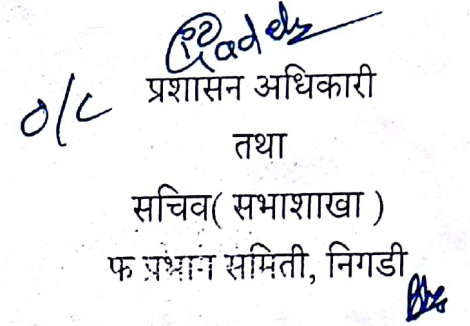 O/C
प्रशासन अधिकारी
तथा
सचिव( सभाशाखा )
फ प्रभाग समिती, निगडी